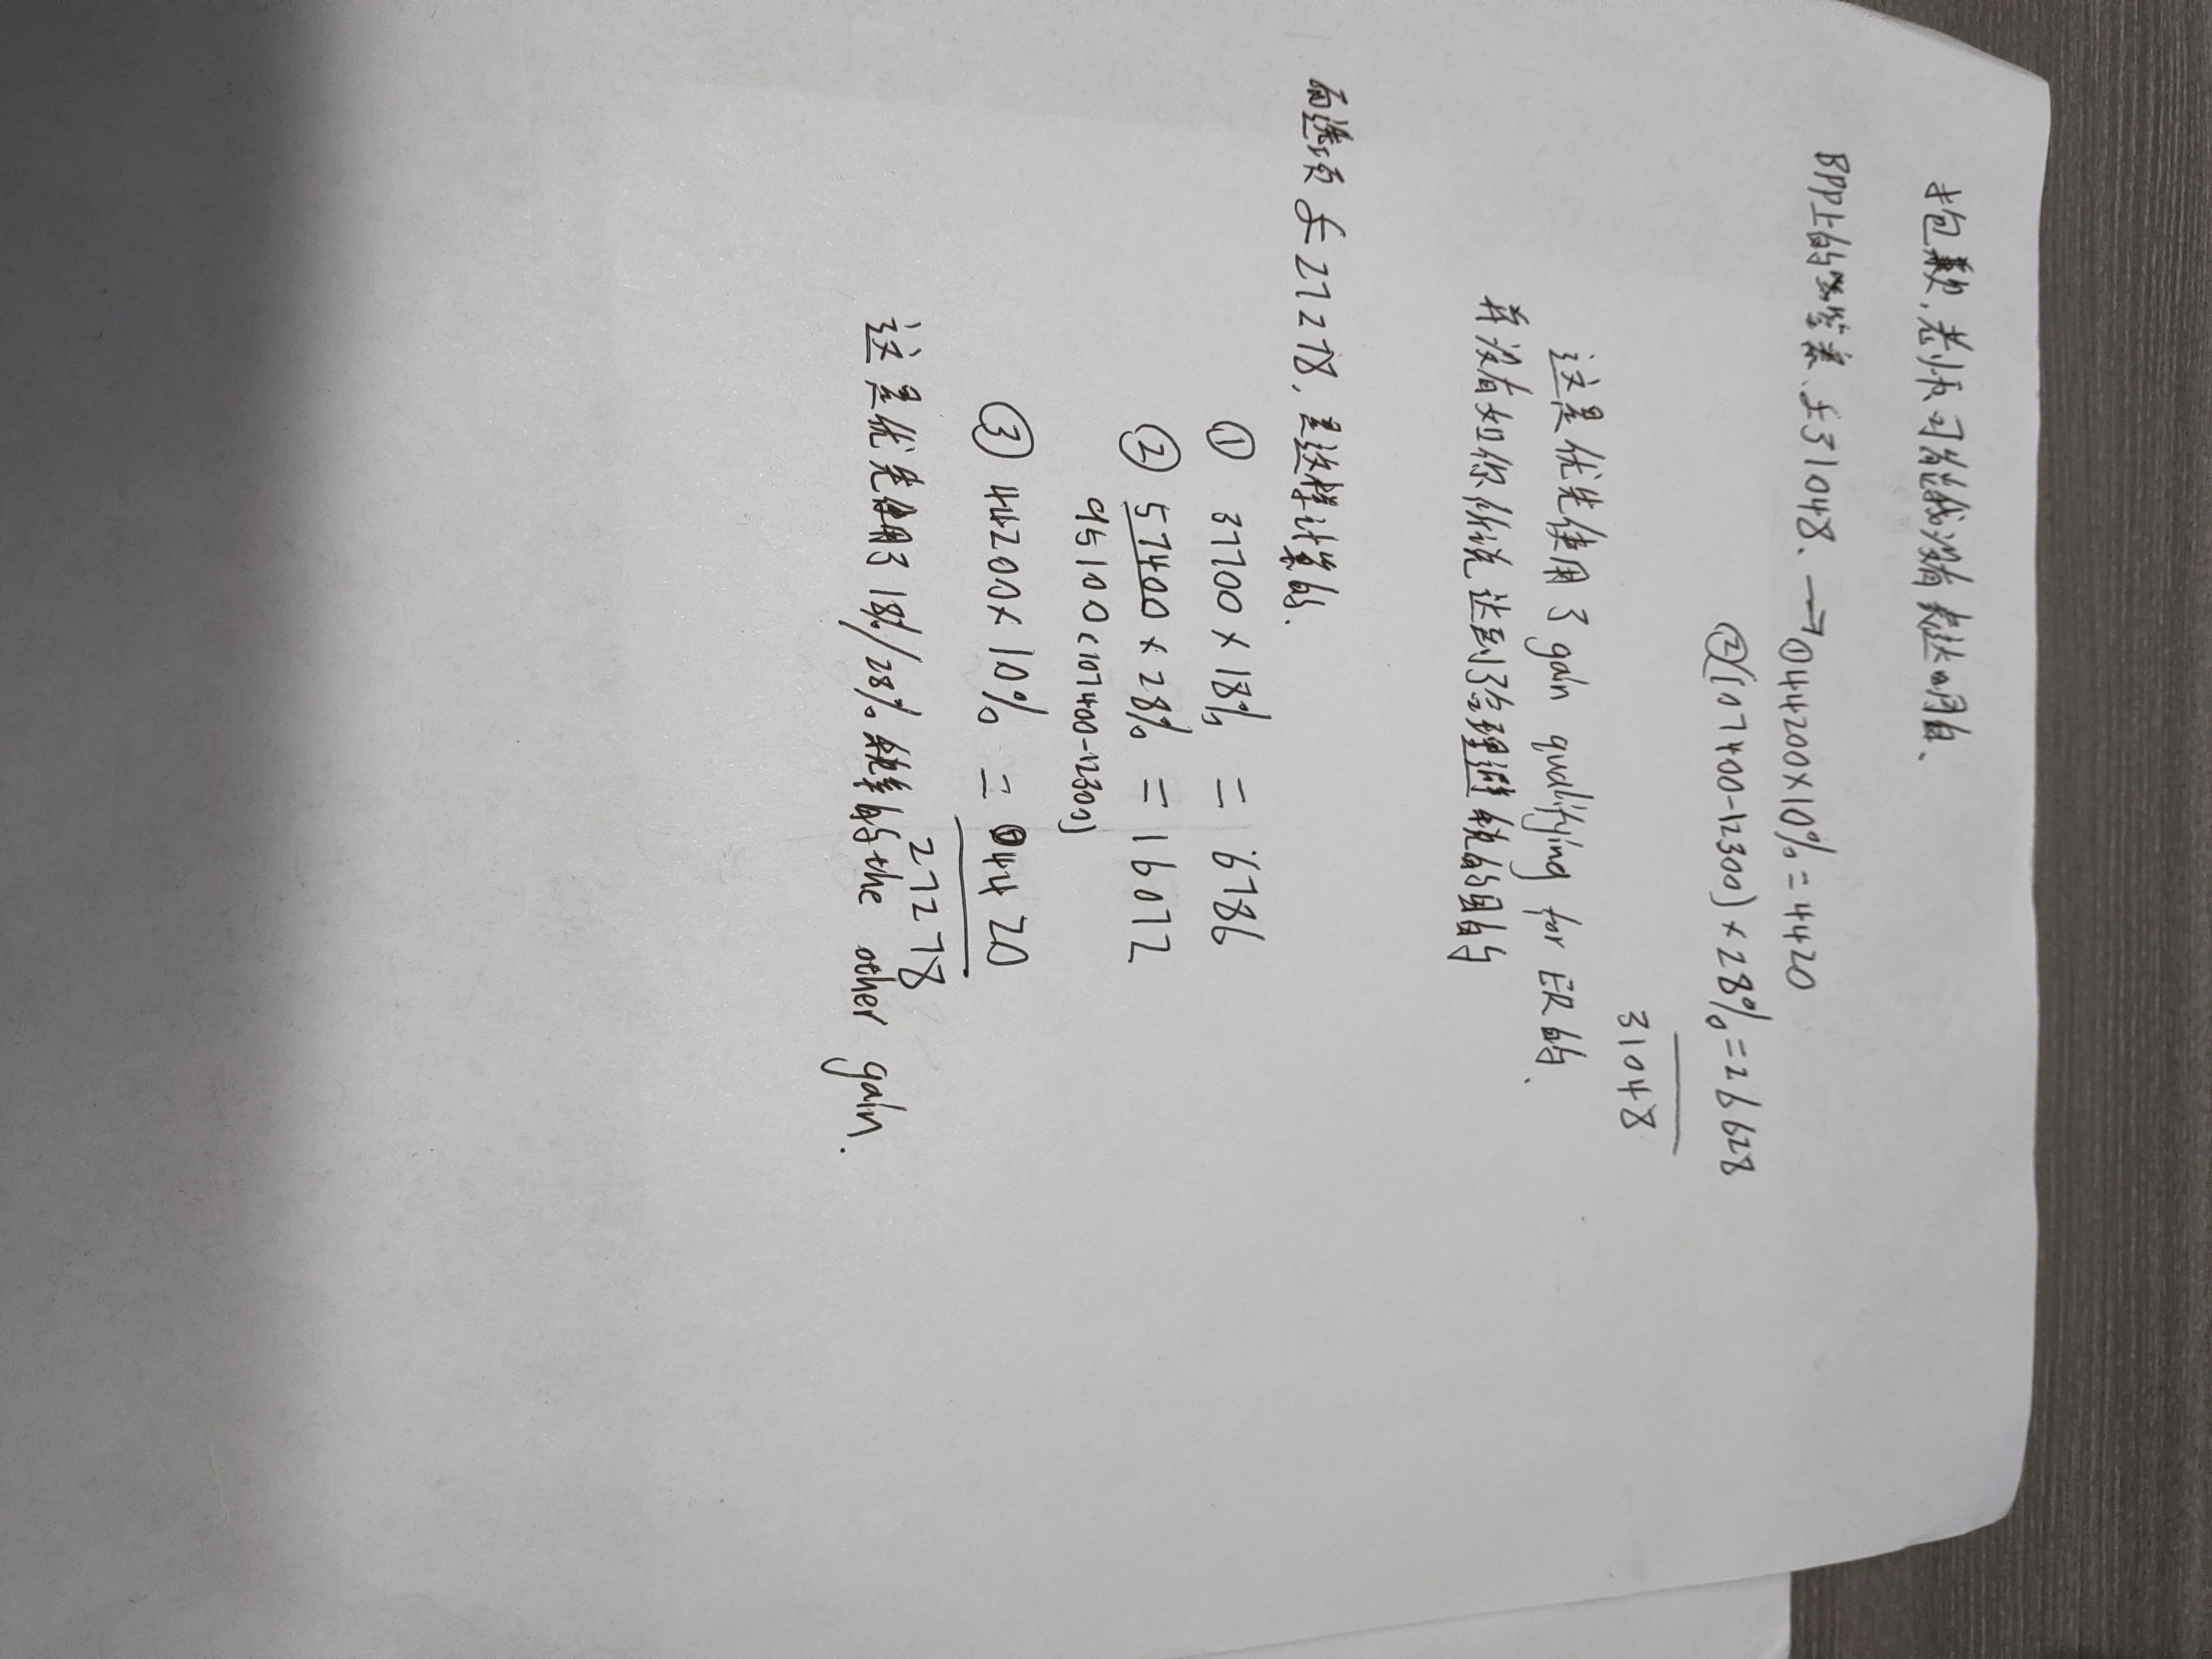 抱歉,老师可能我没有表达明白、
BPP上的答案、£31048、→①44200×10%=4420
②(107400-12300)×28%=26628
31048
这是优先使用了gain qualifying for ER的、
并没有如你所说达到了合理避税的目的
而选项£27278,是这样计算的.
① 37700×18% = 6786
② 57400×28% = 16072
95100(107400-12300)
③ 44200×10% = 4420
27278
这是优先使用了18%/28%税率的the other gain.